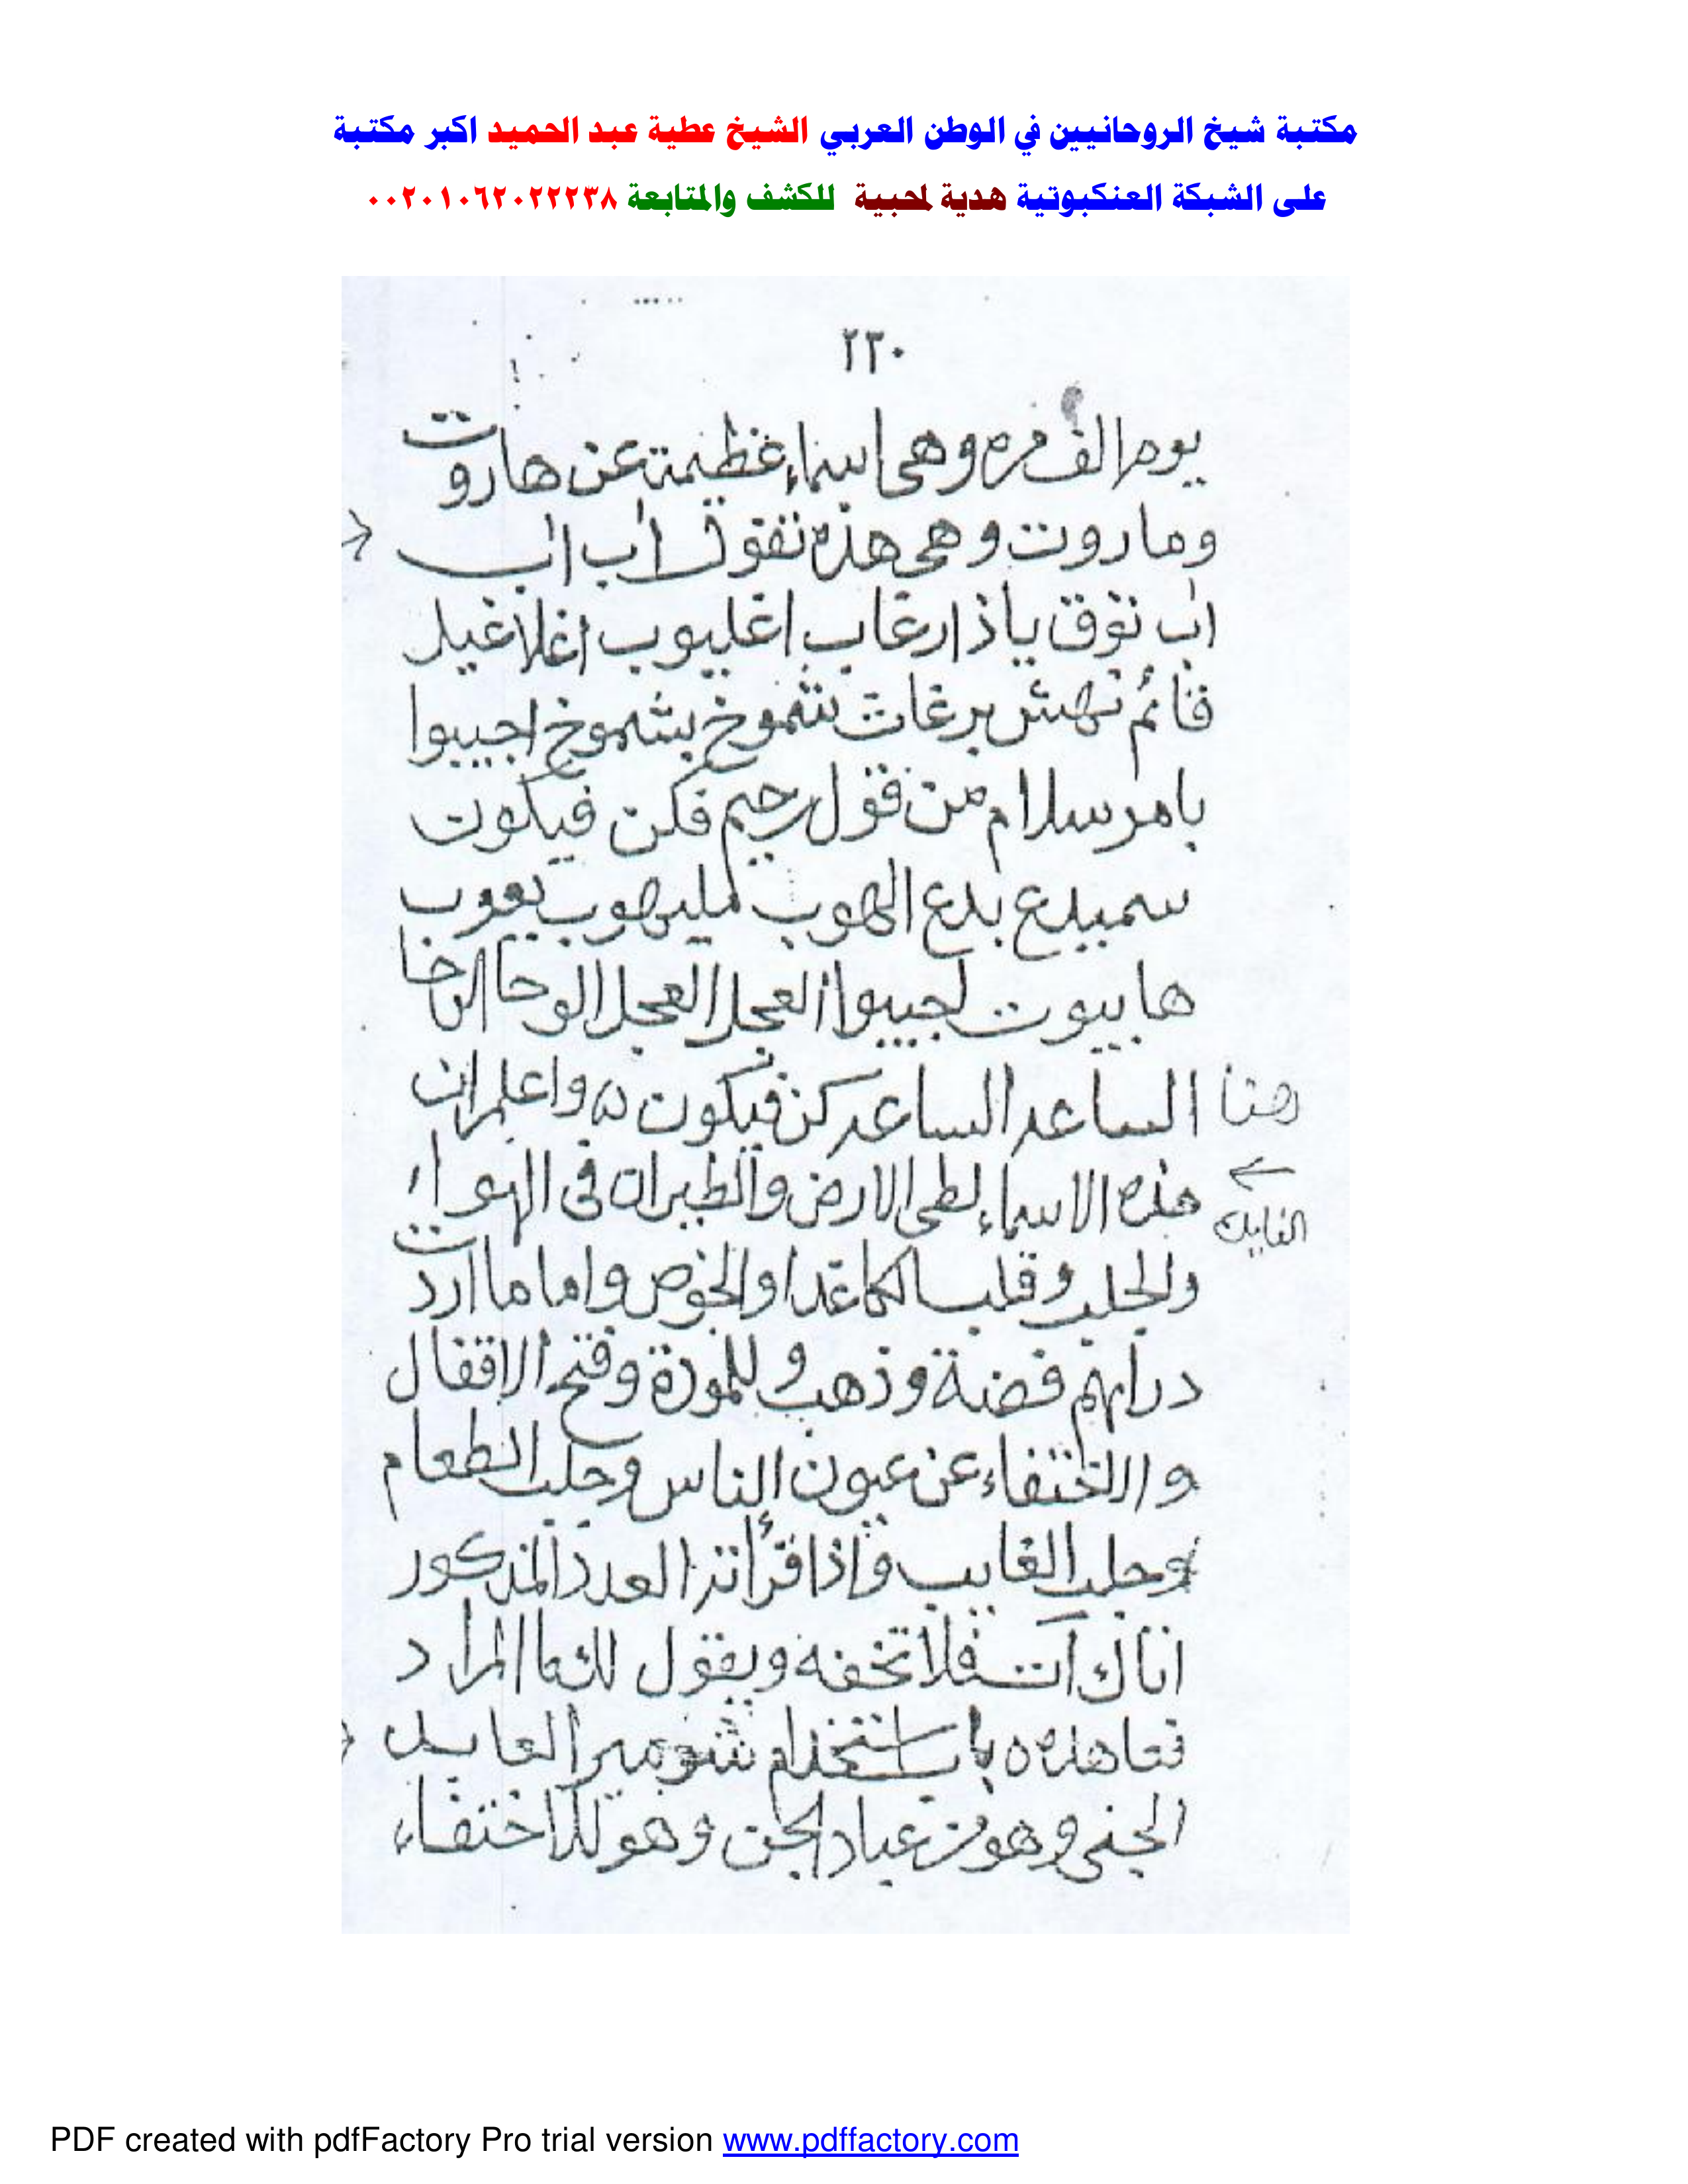 مكتبة شيخ الروحانيين في الوطن العربي الشيخ عطية عبد الحميد اكبر مكتبة
على الشبكة العنكبوتية هدية لمحبية للكشف والمتابعة ٠٠٢٠١٠٦٢٠٢٢٢٣٨
٢٣٠
يوم الف مره وهى اسماء عظيمة عن هاروت
وماروت وهى هذه تقول اب اب
اب توق ياذا رغاب اغليوب اغلاغيل
قائم نهش برغات شموخ بشموخ اجيبوا
بامر سلام من قول رحيم فكن فيكون
سميدع بدع الهوب مليهوب يعوب
هابيوت اجيبوا العجل العجل الوحا الوحا
هنا الساعه الساعه كن فيكون ه واعلم ان
هذه الاسماء لطى الارض والطيران فى الهواء
الفايده
والجلب وقلب الكاغد او الخوص واما ما اردت
دراهم فضة وذهب وللمودة وفتح الاقفال
والاختفاء عن عيون الناس وجلب الطعام
وجلب الغايب واذا قرأتر العدد المذكور
اتاك آت فلا تخفه ويقول لك ما المراد
فعاهده ه باب استخدام العابد
الجنى وهو من عباد الجن وهو للاختفاء
PDF created with pdfFactory Pro trial version www.pdffactory.com